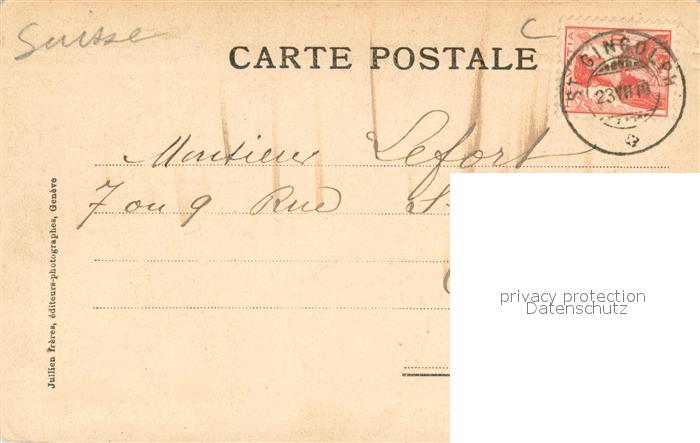 Suisse
C
CARTE POSTALE
HELVETIA
ST GINGOLPH
23 VII 10
Monsieur Lefort
7 ou 9 Rue S
Jullien frères, éditeurs-photographes, Genève
privacy protection
Datenschutz